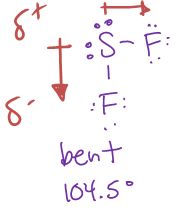 δ+
S-F
δ-
F
bent
104.5°